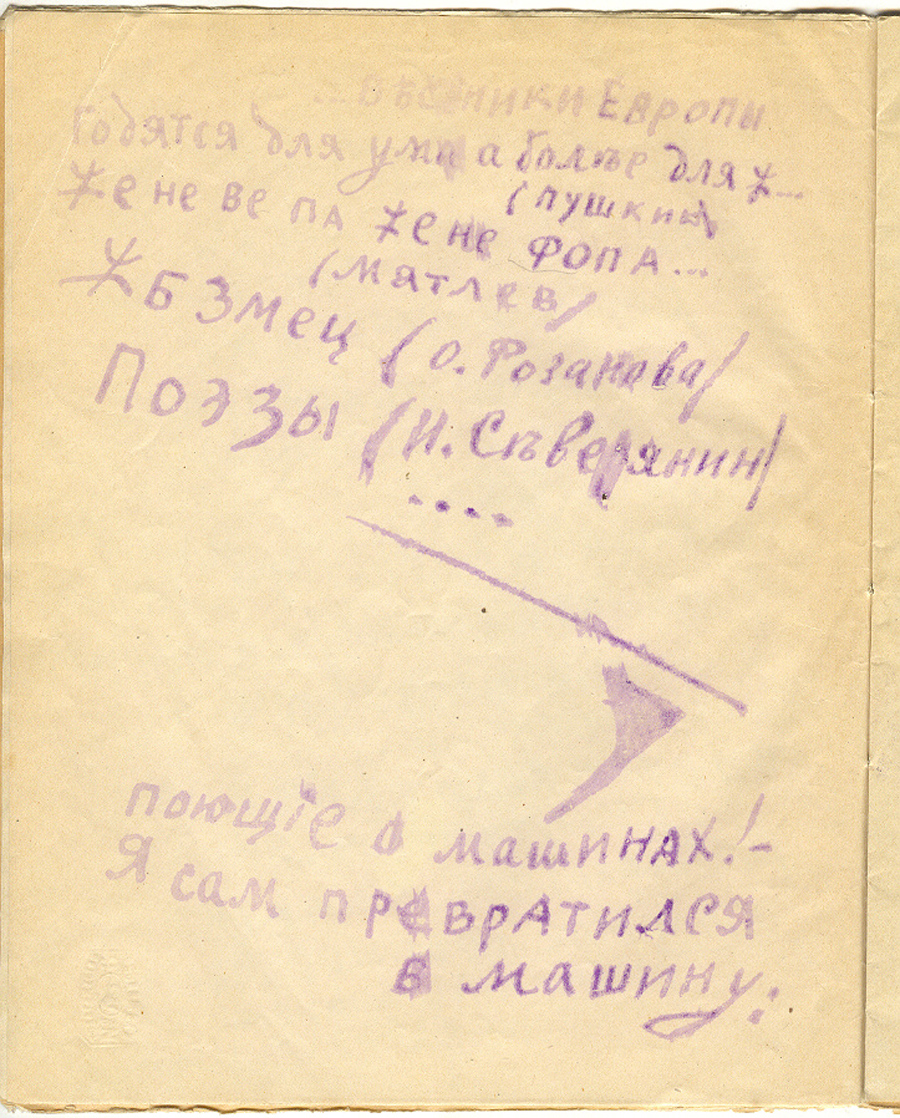 ...Вестники Европы
годятся для ума а болѣе для ж...
(пушкин)
же не ве па же не фопа...
(Мятлев)
ж б змец (о. Розанова)
Поэзы (И. Сѣверянин)
....
поющіе о машинах! –
Я сам превратился
в машину: